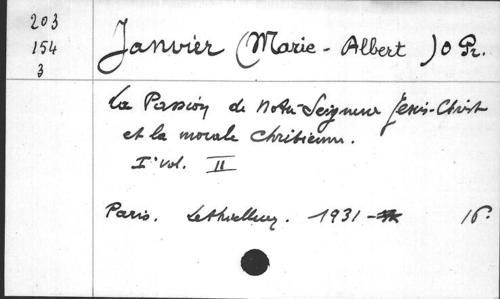 203
154
3
Janvier (Marie-Albert) O Pr.
La Passion de Notre-Seigneur Jésus-Christ
et la morale chrétienne.
I° vol. II
Paris. Lethielleux. 1931- 16°